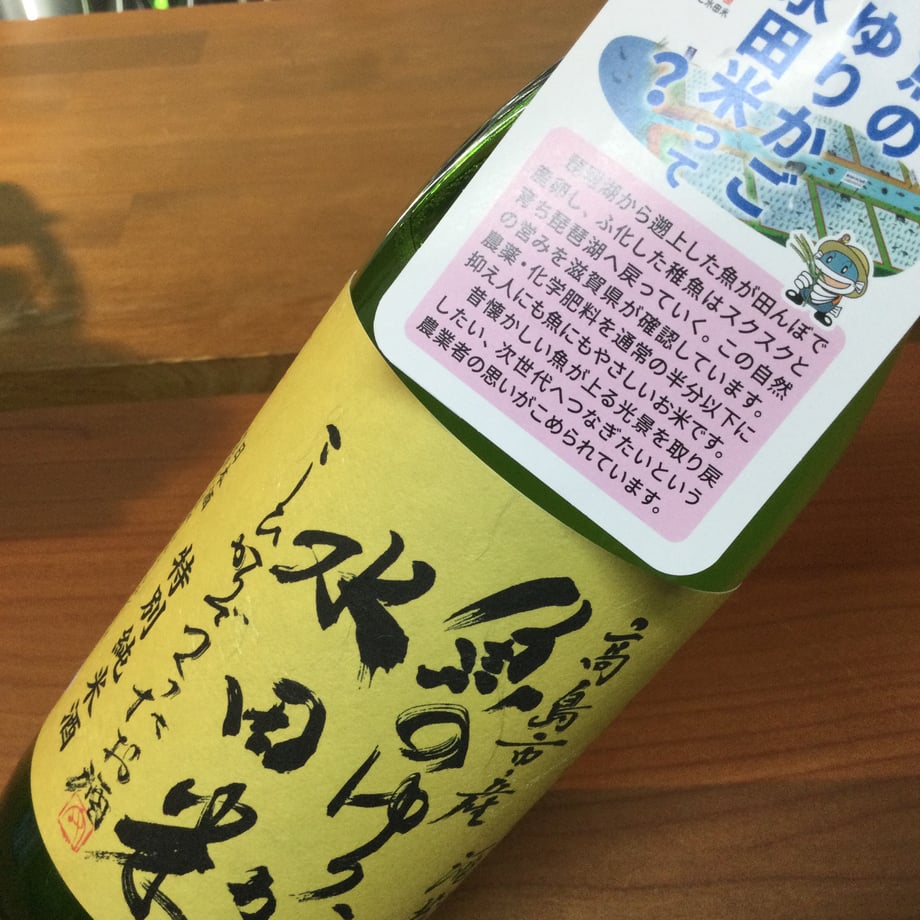 魚の
ゆりかご
水田米って
?
琵琶湖から遡上した魚が田んぼで
産卵し、ふ化した稚魚はスクスクと
育ち琵琶湖へ戻っていく。この自然
の営みを滋賀県が確認しています。
農薬・化学肥料を通常の半分以下に
抑え人にも魚にもやさしいお米です。
昔懐かしい魚が上る光景を取り戻
したい、次世代へつなぎたいという
農業者の思いがこめられています。
高島市産
魚のゆりか
水田米
こしひかりでつくったお酒
日本酒
特別純米酒